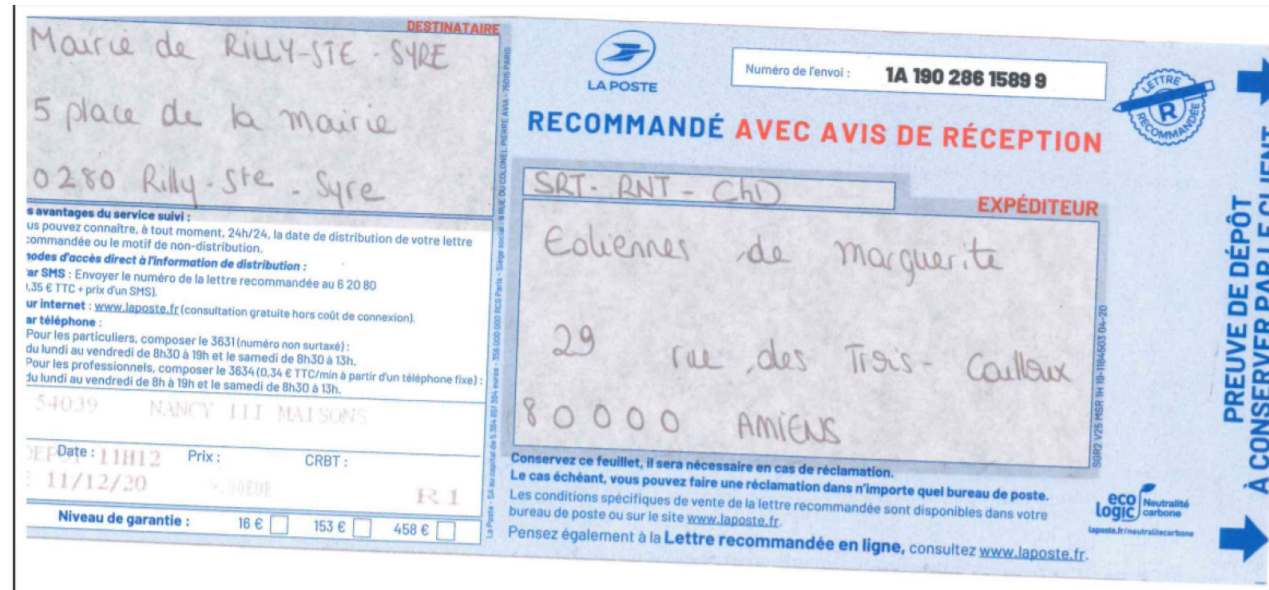 DESTINATAIRE
Mairie de RILLY-STE-SYRE
5 place de la mairie
0280 Rilly-Ste-Syre
s avantages du service suivi :
us pouvez connaître, à tout moment, 24h/24, la date de distribution de votre lettre
commandée ou le motif de non-distribution.
nodes d'accès direct à l'information de distribution :
ar SMS : Envoyer le numéro de la lettre recommandée au 6 20 80
,35 € TTC + prix d'un SMS).
ur internet : www.laposte.fr (consultation gratuite hors coût de connexion).
ar téléphone :
Pour les particuliers, composer le 3631 (numéro non surtaxé) :
du lundi au vendredi de 8h30 à 19h et le samedi de 8h30 à 13h.
Pour les professionnels, composer le 3634 (0,34 € TTC/min à partir d'un téléphone fixe) :
du lundi au vendredi de 8h à 19h et le samedi de 8h30 à 13h.
54039 NANCY III MAISONS
Date : 11H12 Prix : CRBT :
11/12/20 R1
Niveau de garantie : 16 € 153 € 458 €
LA POSTE
Numéro de l'envoi : 1A 190 286 1589 9
LETTRE RECOMMANDÉE
R
RECOMMANDÉ AVEC AVIS DE RÉCEPTION
SRT-RNT-ChD
EXPÉDITEUR
Eoliennes de marguerite
29 rue des Trois-Cailloux
80000 AMIENS
Conservez ce feuillet, il sera nécessaire en cas de réclamation.
Le cas échéant, vous pouvez faire une réclamation dans n'importe quel bureau de poste.
Les conditions spécifiques de vente de la lettre recommandée sont disponibles dans votre
bureau de poste ou sur le site www.laposte.fr.
Pensez également à la Lettre recommandée en ligne, consultez www.laposte.fr.
SGR2 V25 MSR 1H 19-1184503 04-20
eco logic Neutralité carbone
laposte.fr/neutralitecarbone
PREUVE DE DÉPÔT
À CONSERVER PAR LE CLIENT